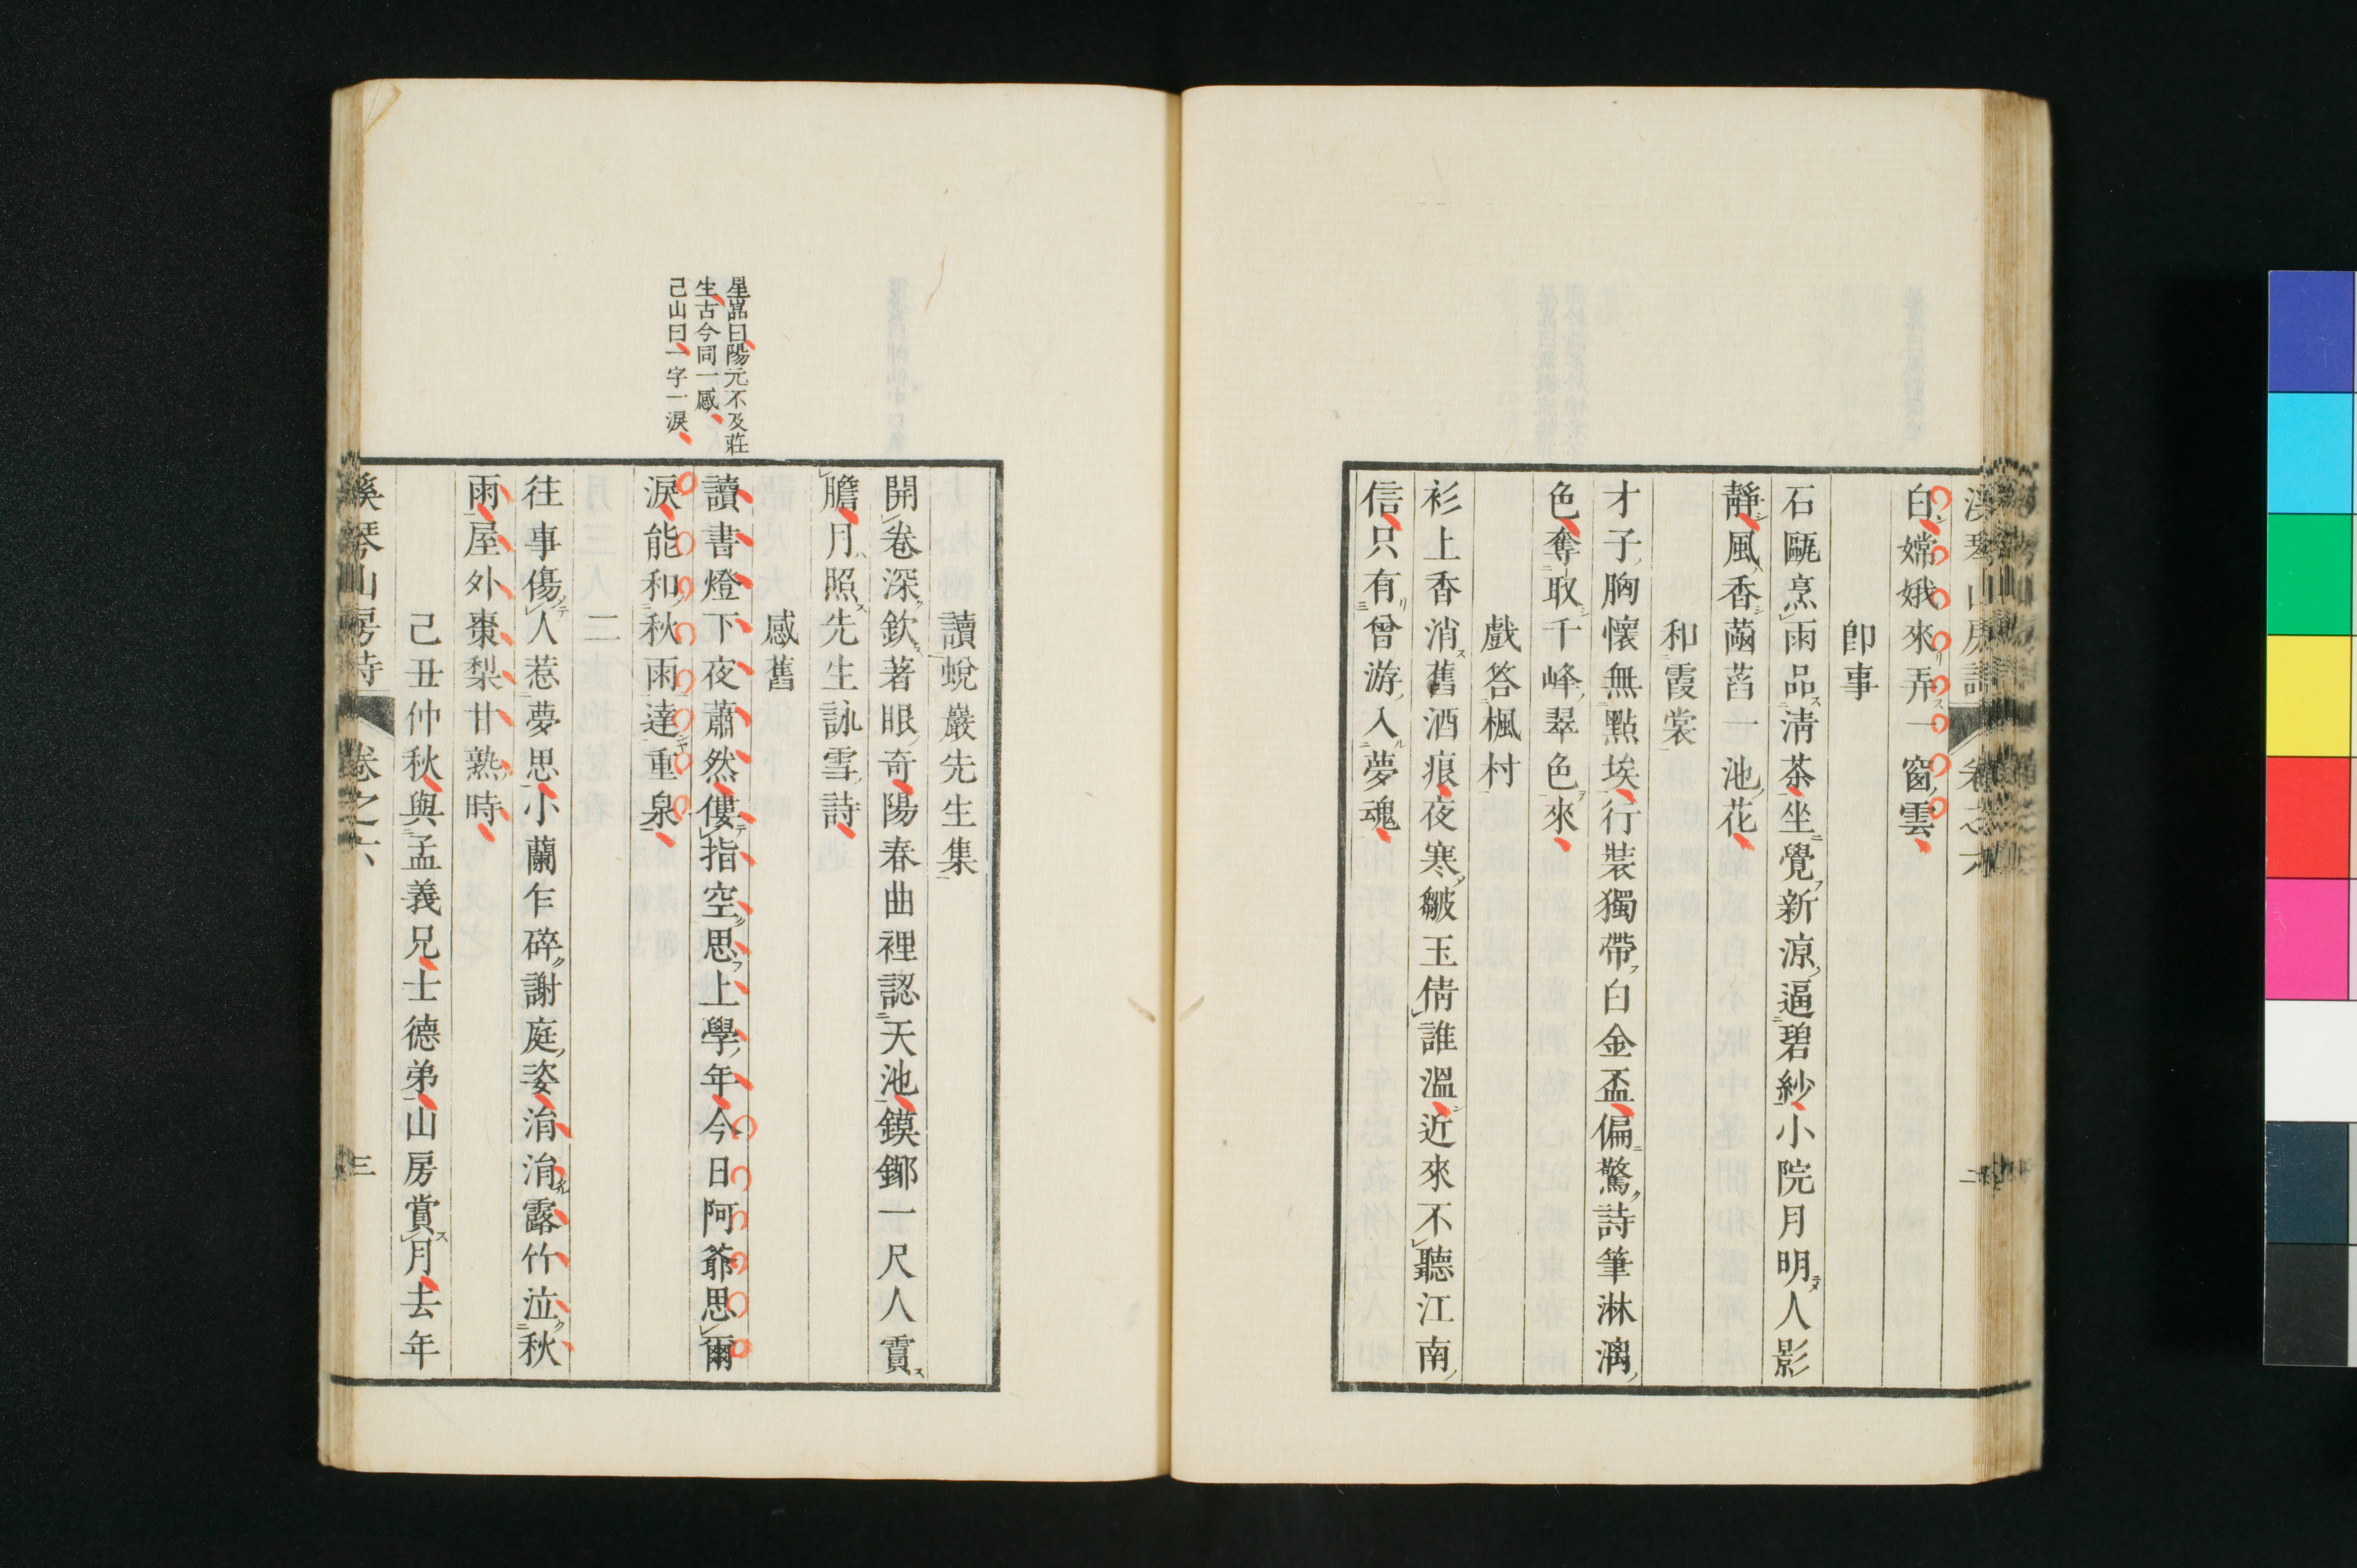 溪琴山房詩 卷之六 二
白嫦娥來弄一窗雲
卽事
石甌烹雨品淸茶坐覺新涼逼碧紗小院月明人影
靜風香菡萏一池花
和霞裳
才子胸懷無點埃行裝獨帶白金盃偏驚詩筆淋漓
色奪取千峰翠色來
戲答楓村
衫上香消舊酒痕夜寒皺玉倩誰溫近來不聽江南
信只有曾游入夢魂
讀蛻巖先生集
開卷深欽著眼奇陽春曲裡認天池鏌鎁一尺人賣
膽月照先生詠雪詩
感舊
星嵓曰陽元不及莊
生古今同一感
己山曰一字一淚
讀書燈下夜蕭然僂指空思上學年今日阿爺思爾
淚能和秋雨達重泉
二
往事傷人惹夢思小蘭乍碎謝庭姿涓涓露竹泣秋
雨屋外棗梨甘熟時
己丑仲秋與孟義兄士德弟山房賞月去年
溪琴山房詩 卷之六 三